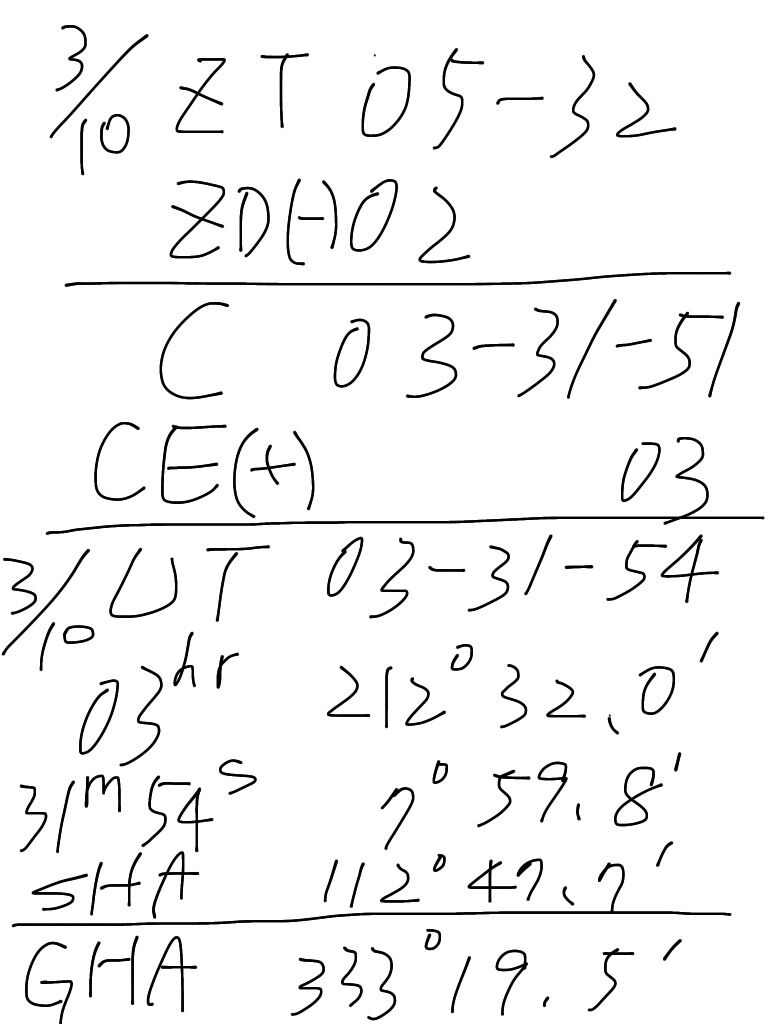 3/10 ZT 05-32
ZD(-)02
C 03-31-51
CE(+) 03
3/10 UT 03-31-54
03hr 212°32.0'
31m54s 7°59.8'
SHA 112°47.7'
GHA 333°19.5'